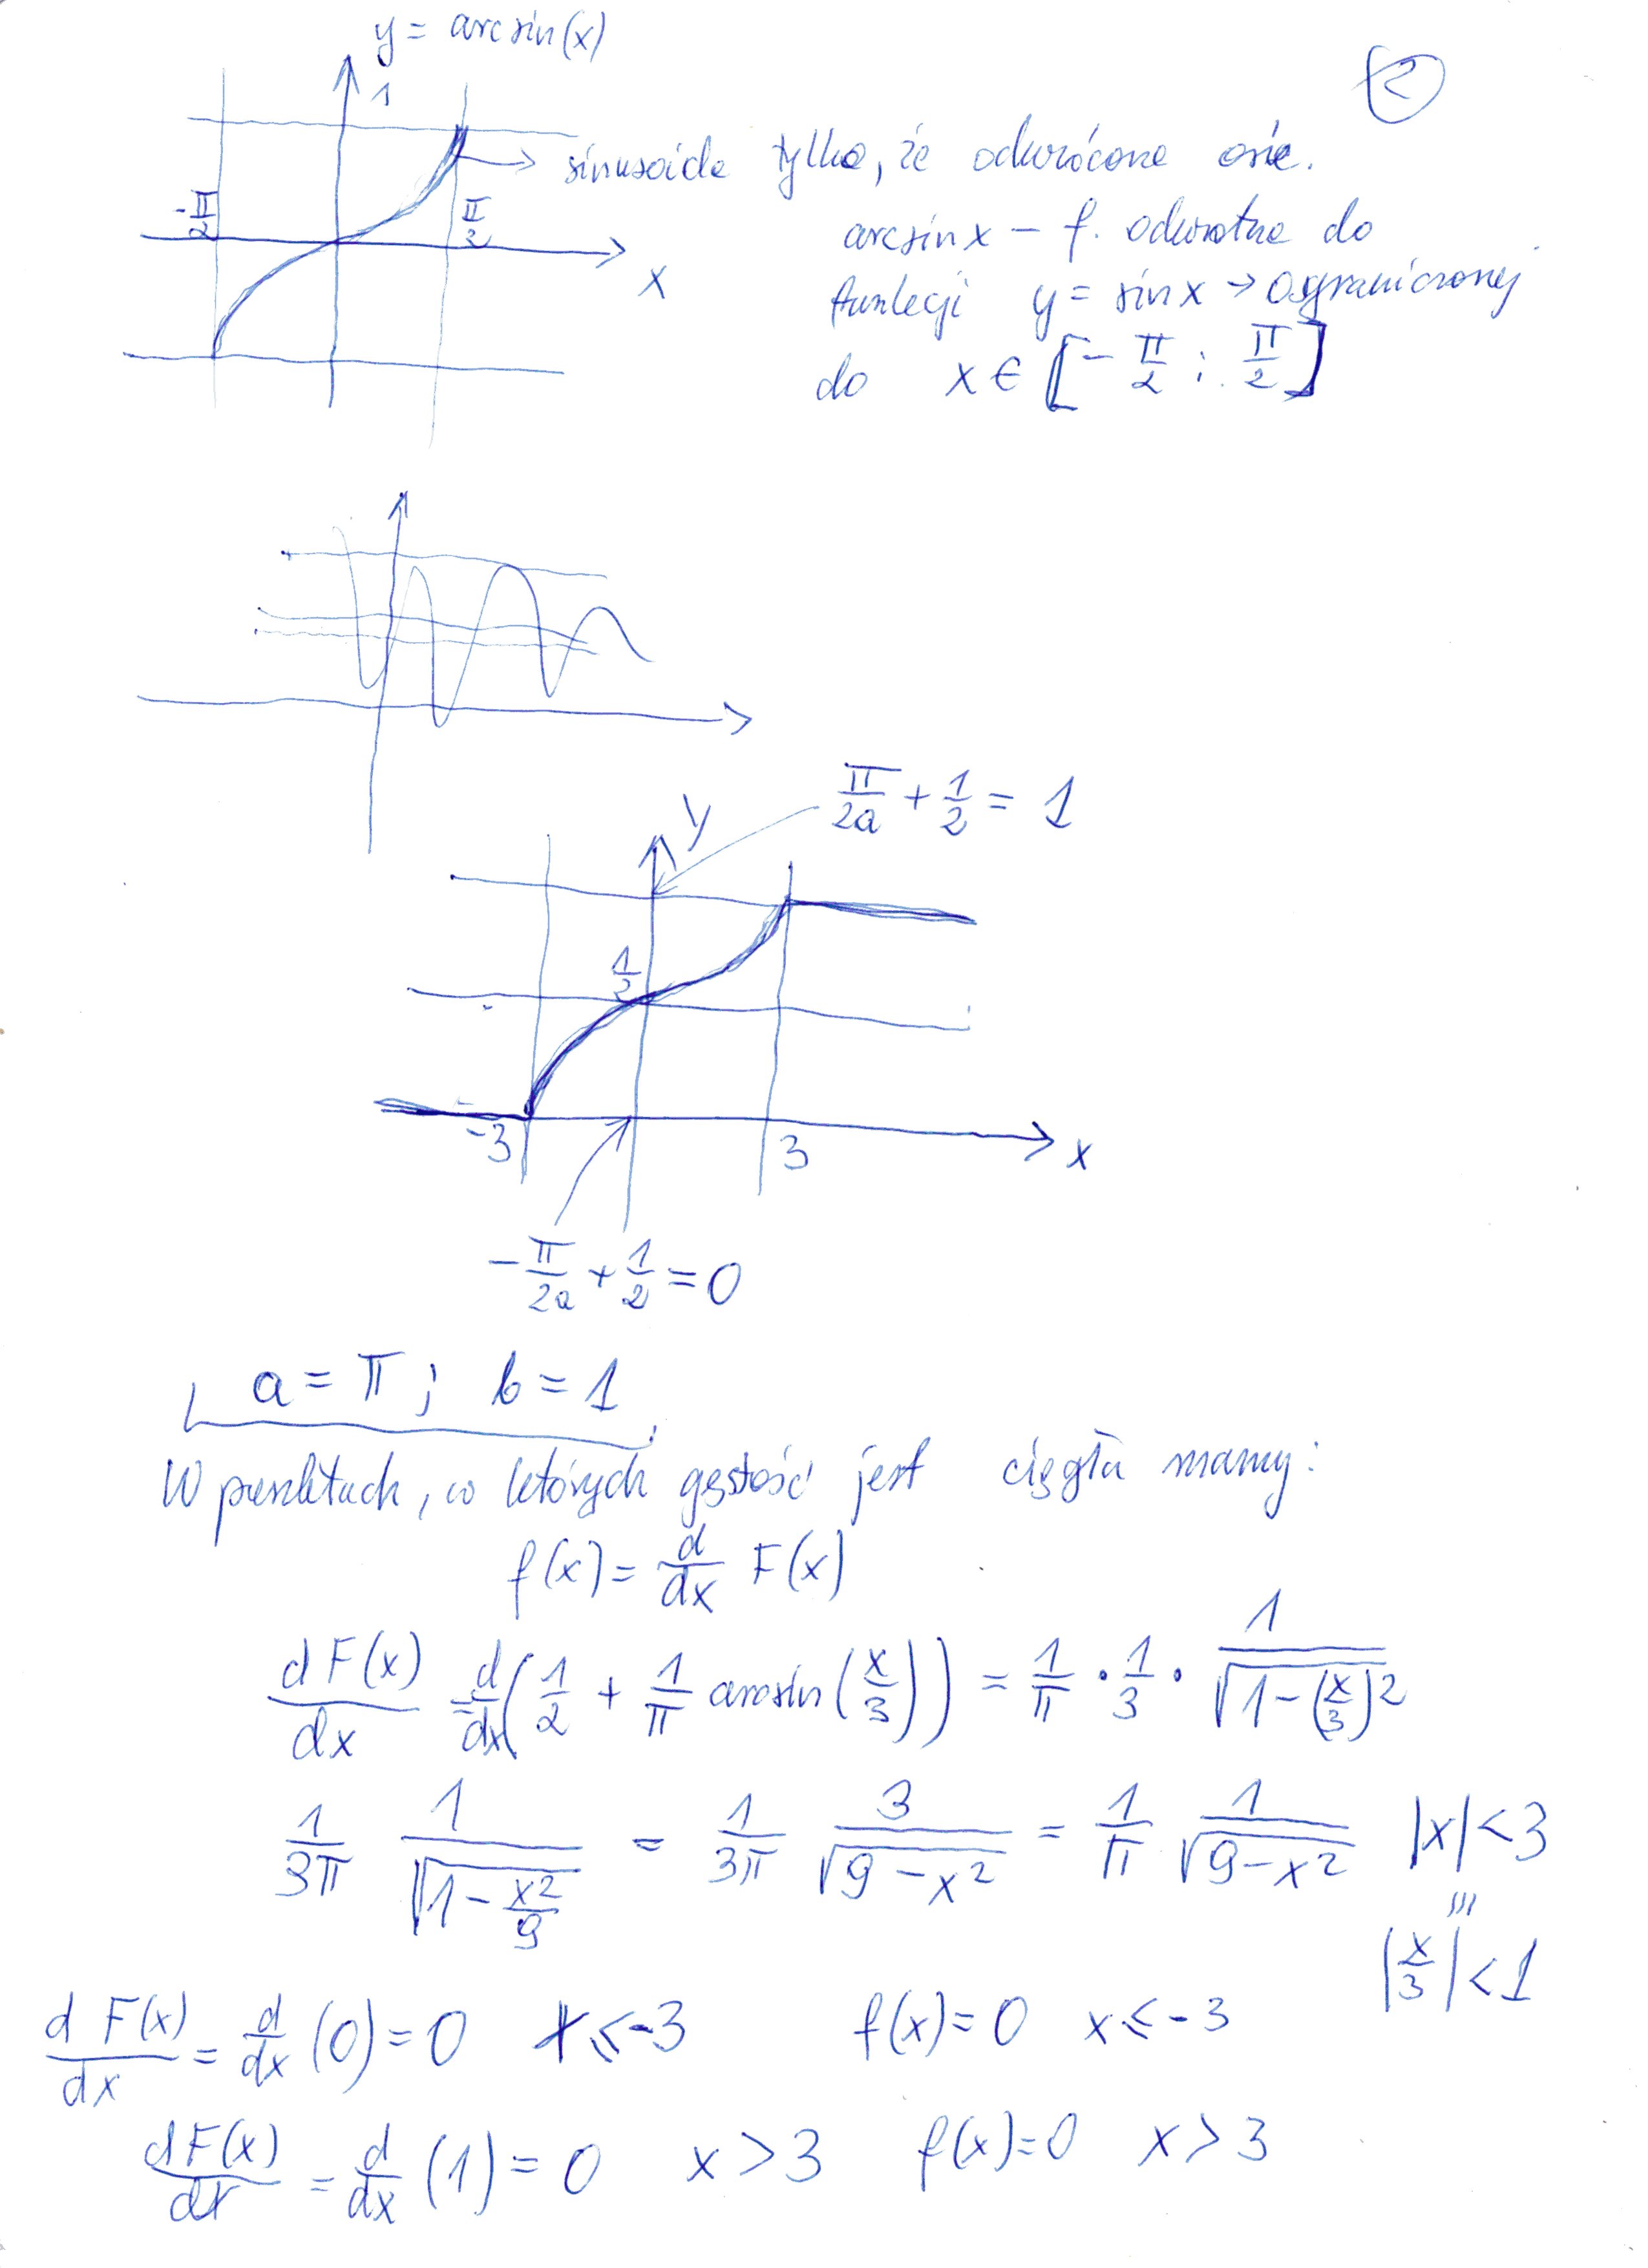 y = arcsin(x)
2
1
sinusoida tylko, że odwrócone osie.
-π/2
π/2
x
arcsin x – f. odwrotna do
funkcji y = sin x → ograniczonej
do x ∈ [-π/2 ; π/2]
π/2a + 1/2 = 1
y
1/2
-3
3
x
-π/2a + 1/2 = 0
a = π ; b = 1
W punktach, w których gęstość jest ciągła mamy:
f(x) = d/dx F(x)
dF(x)/dx = d/dx(1/2 + 1/π arcsin(x/3)) = 1/π · 1/3 · 1/√(1-(x/3)²)
1/3π 1/√(1-x²/9) = 1/3π 3/√(9-x²) = 1/π 1/√(9-x²) |x|<3
≡
|x/3|<1
dF(x)/dx = d/dx (0) = 0 x ≤ -3 f(x) = 0 x ≤ -3
dF(x)/dx = d/dx (1) = 0 x > 3 f(x) = 0 x > 3